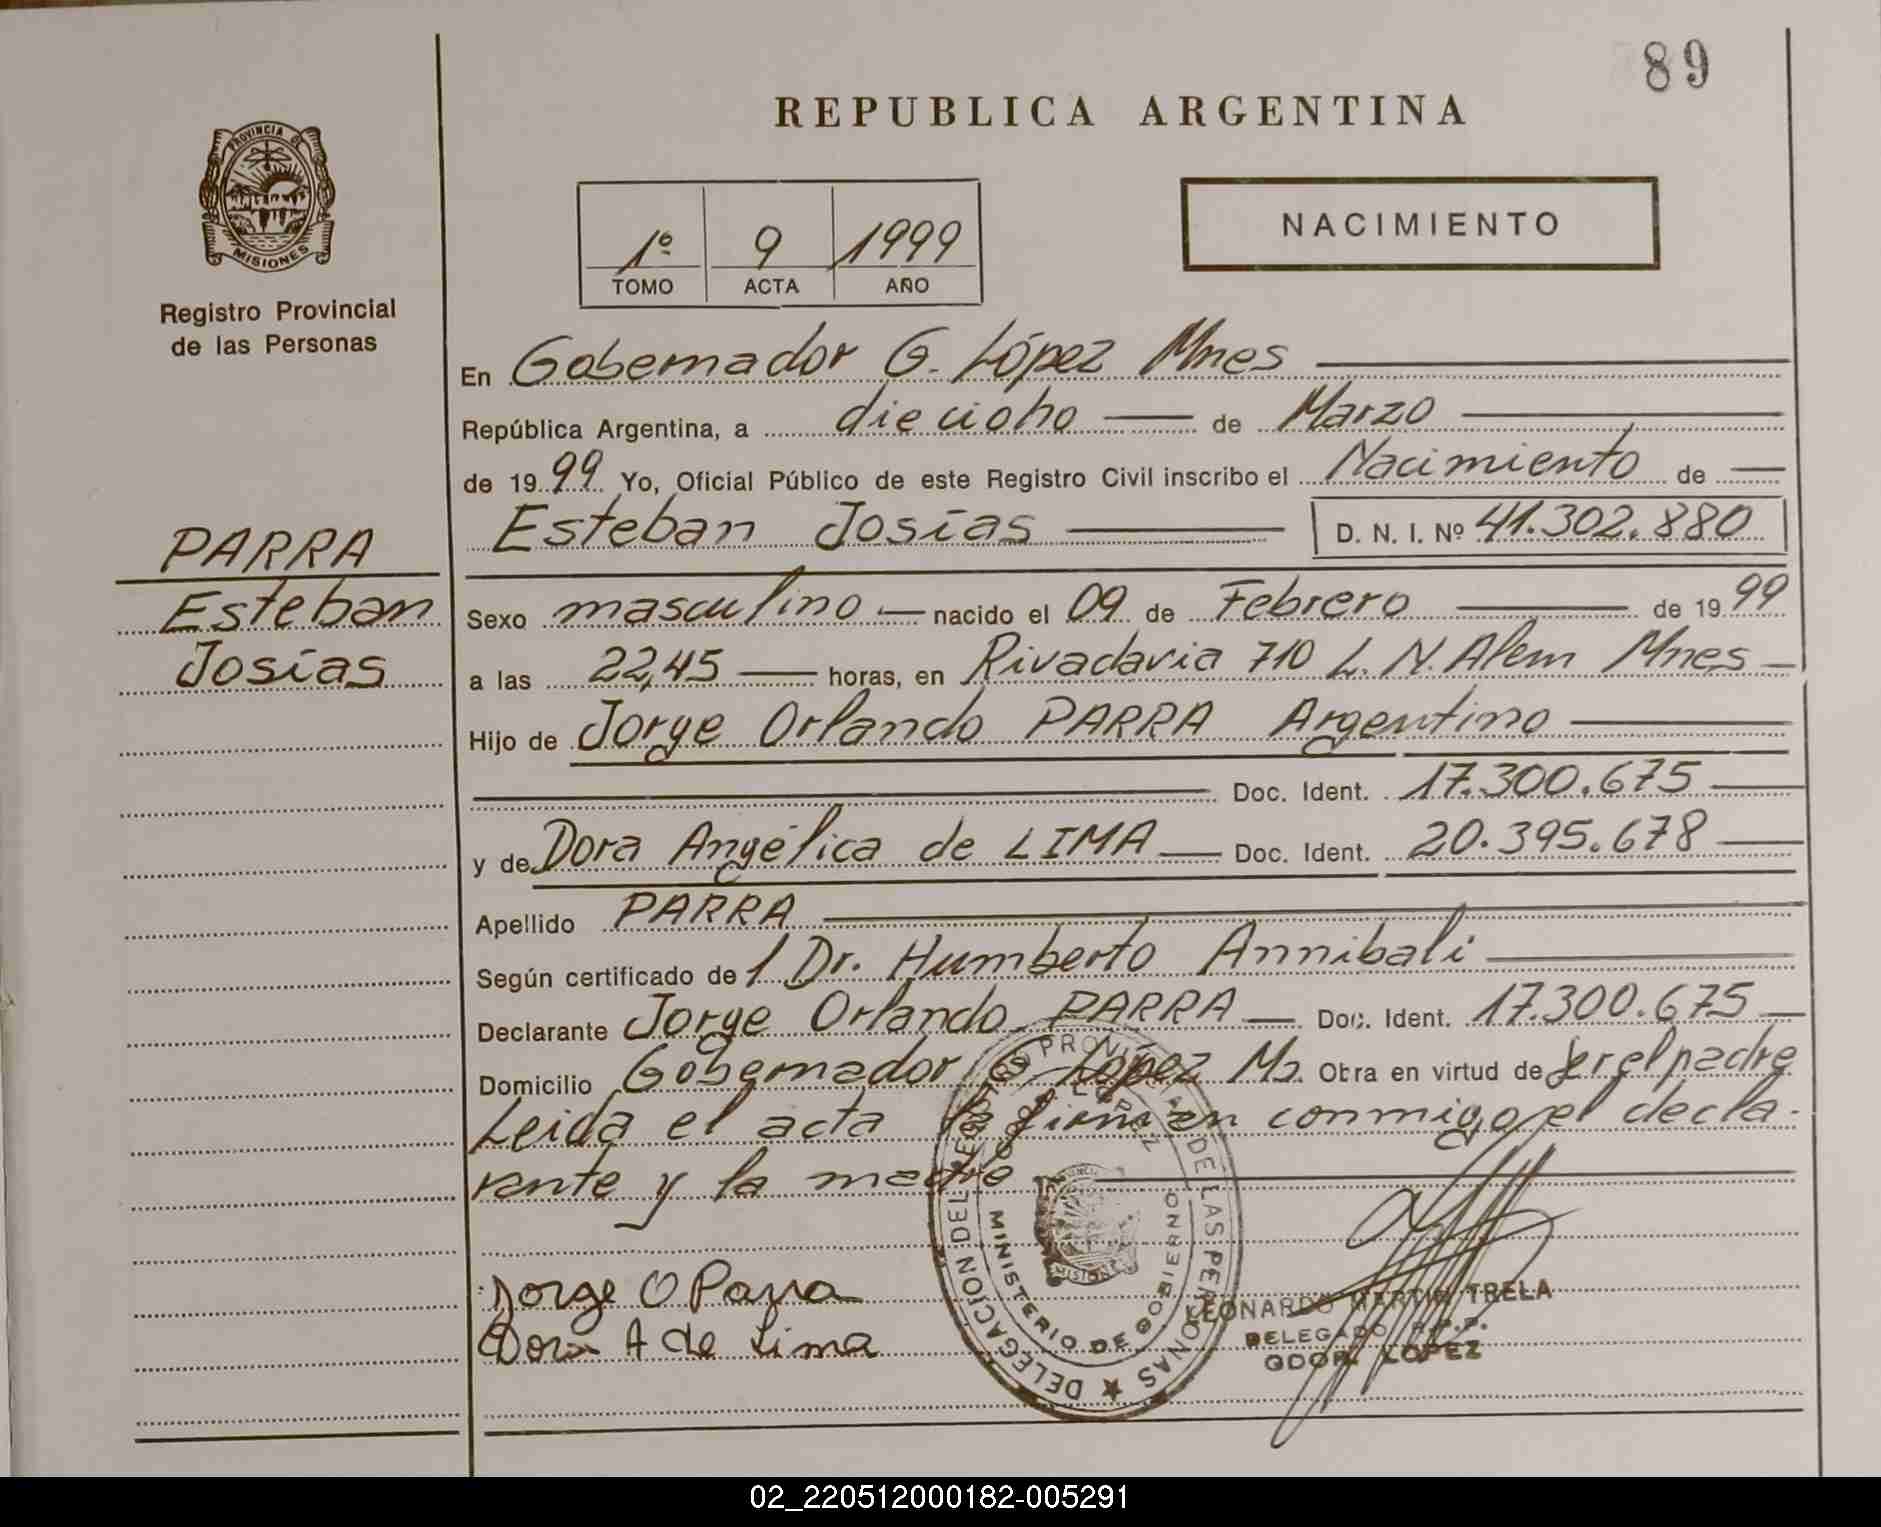 89
REPUBLICA ARGENTINA
PROVINCIA DE
MISIONES
Registro Provincial
de las Personas
1º 9 1999
TOMO ACTA AÑO
NACIMIENTO
En Gobernador G. López Mnes
República Argentina, a diecioho de Marzo
de 1999 Yo, Oficial Público de este Registro Civil inscribo el Nacimiento de
Esteban Josías D. N. I. Nº 41.302.880
PARRA
Esteban
Josías
Sexo masculino nacido el 09 de Febrero de 1999
a las 22,45 horas, en Rivadavia 710 L. N. Alem Mnes
Hijo de Jorge Orlando PARRA Argentino
Doc. Ident. 17.300.675
y de Dora Angélica de LIMA Doc. Ident. 20.395.678
Apellido PARRA
Según certificado de 1 Dr. Humberto Annibali
Declarante Jorge Orlando PARRA Doc. Ident. 17.300.675
Domicilio Gobernador G. López Ms. Obra en virtud de ser el padre
Leida el acta la firman conmigo el decla-
rante y la madre
Jorge O Parra
Dora A de Lima
DELEGACION DEL REGISTRO PROVINCIAL DE LAS PERSONAS
GDOR. LOPEZ
MINISTERIO DE GOBIERNO
MISIONES
LEONARDO MARTIN TRELA
DELEGADO R.P.P.
GDOR. LOPEZ
02_220512000182-005291